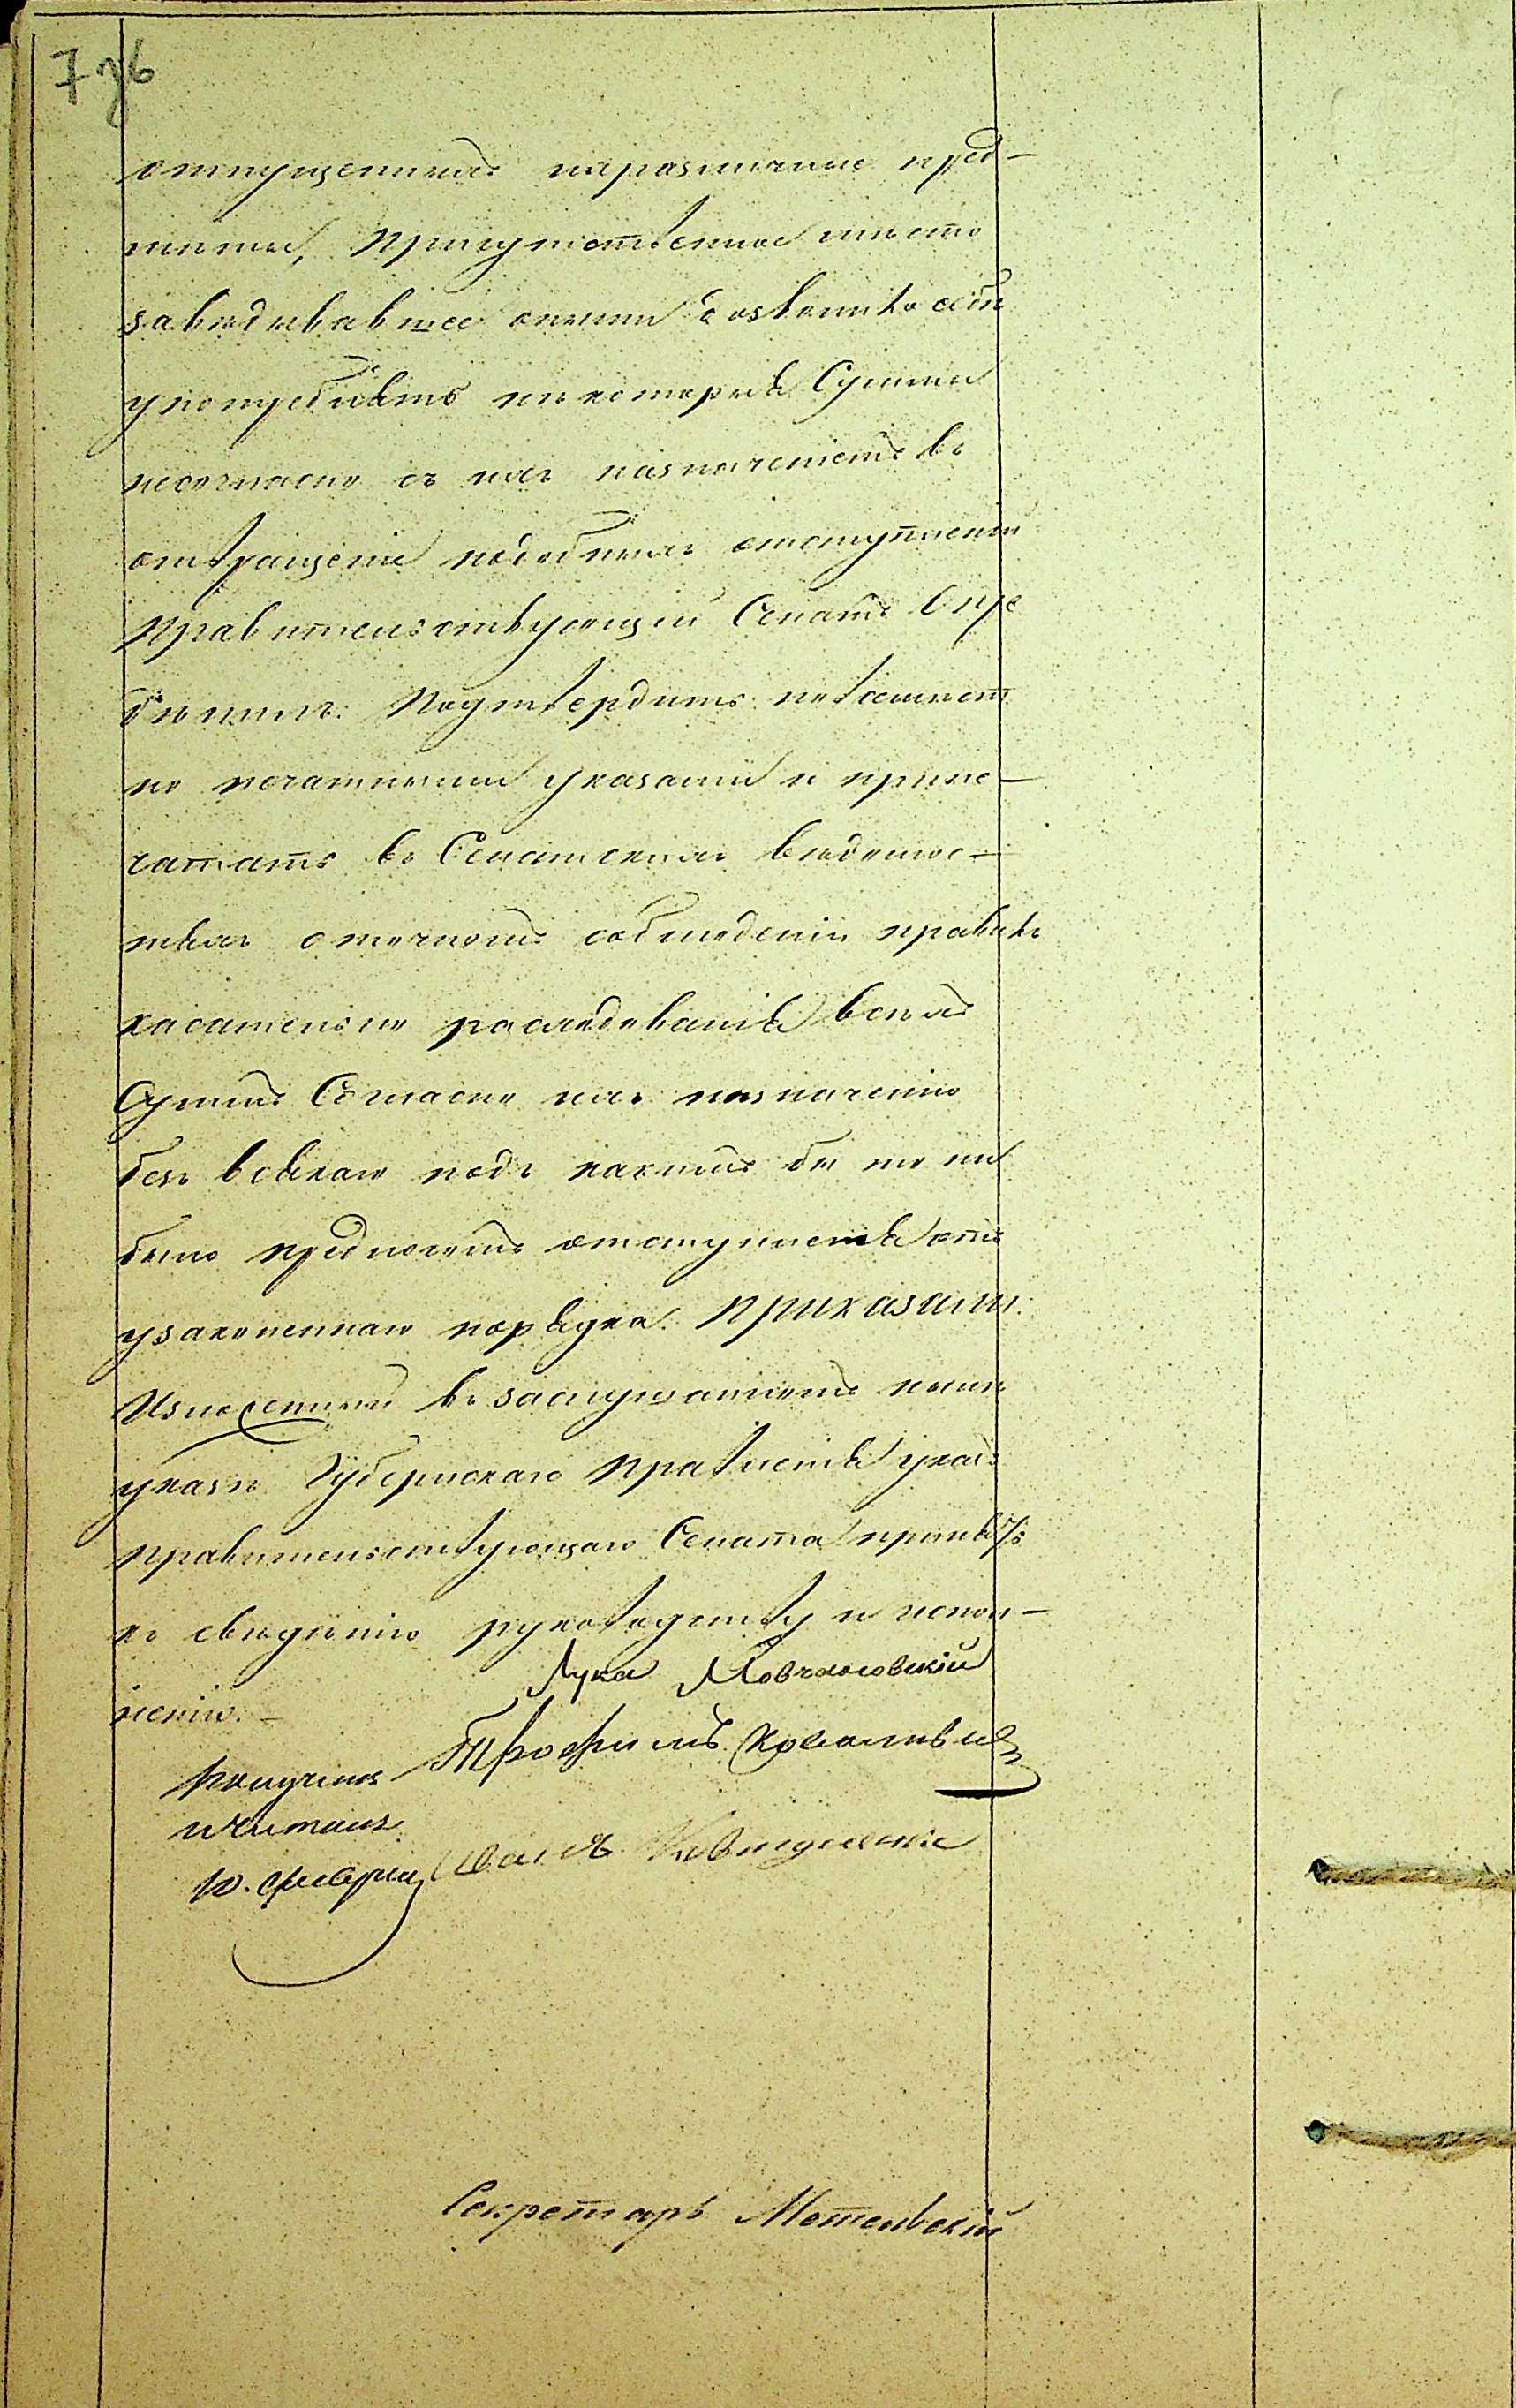 7 зб
отпущенныхъ наразличные пред-
меты, Присутственное место
заведывавшее оными дозволило себе
употреблять некоторыя Суммы
несогласно съ ихъ назначениемъ въ
отвращение подобныхъ отступлений
Правительствующий Сенатъ Опре
делилъ: Подтвердить повсемест
но печатными указами и припе-
чатать въ Сенатскихъ ведомос-
тяхъ оточномъ соблюдении правилъ
касательно расходования всехъ
Суммъ Согласно ихъ назначению
безъ всякаго подъ какимъ бы то ни
было предлогомъ отступления отъ
узаконеннаго порядка. Приказали:
Изъясненный въ заслушанномъ ныне
указе Губернскаго Правления указъ
Правительствующаго Сената принять
къ сведению руководству и испол-
нению. -
Лука
Трофимъ
Получилъ
ичиталъ
10. февраля
Иванъ
Секретарь